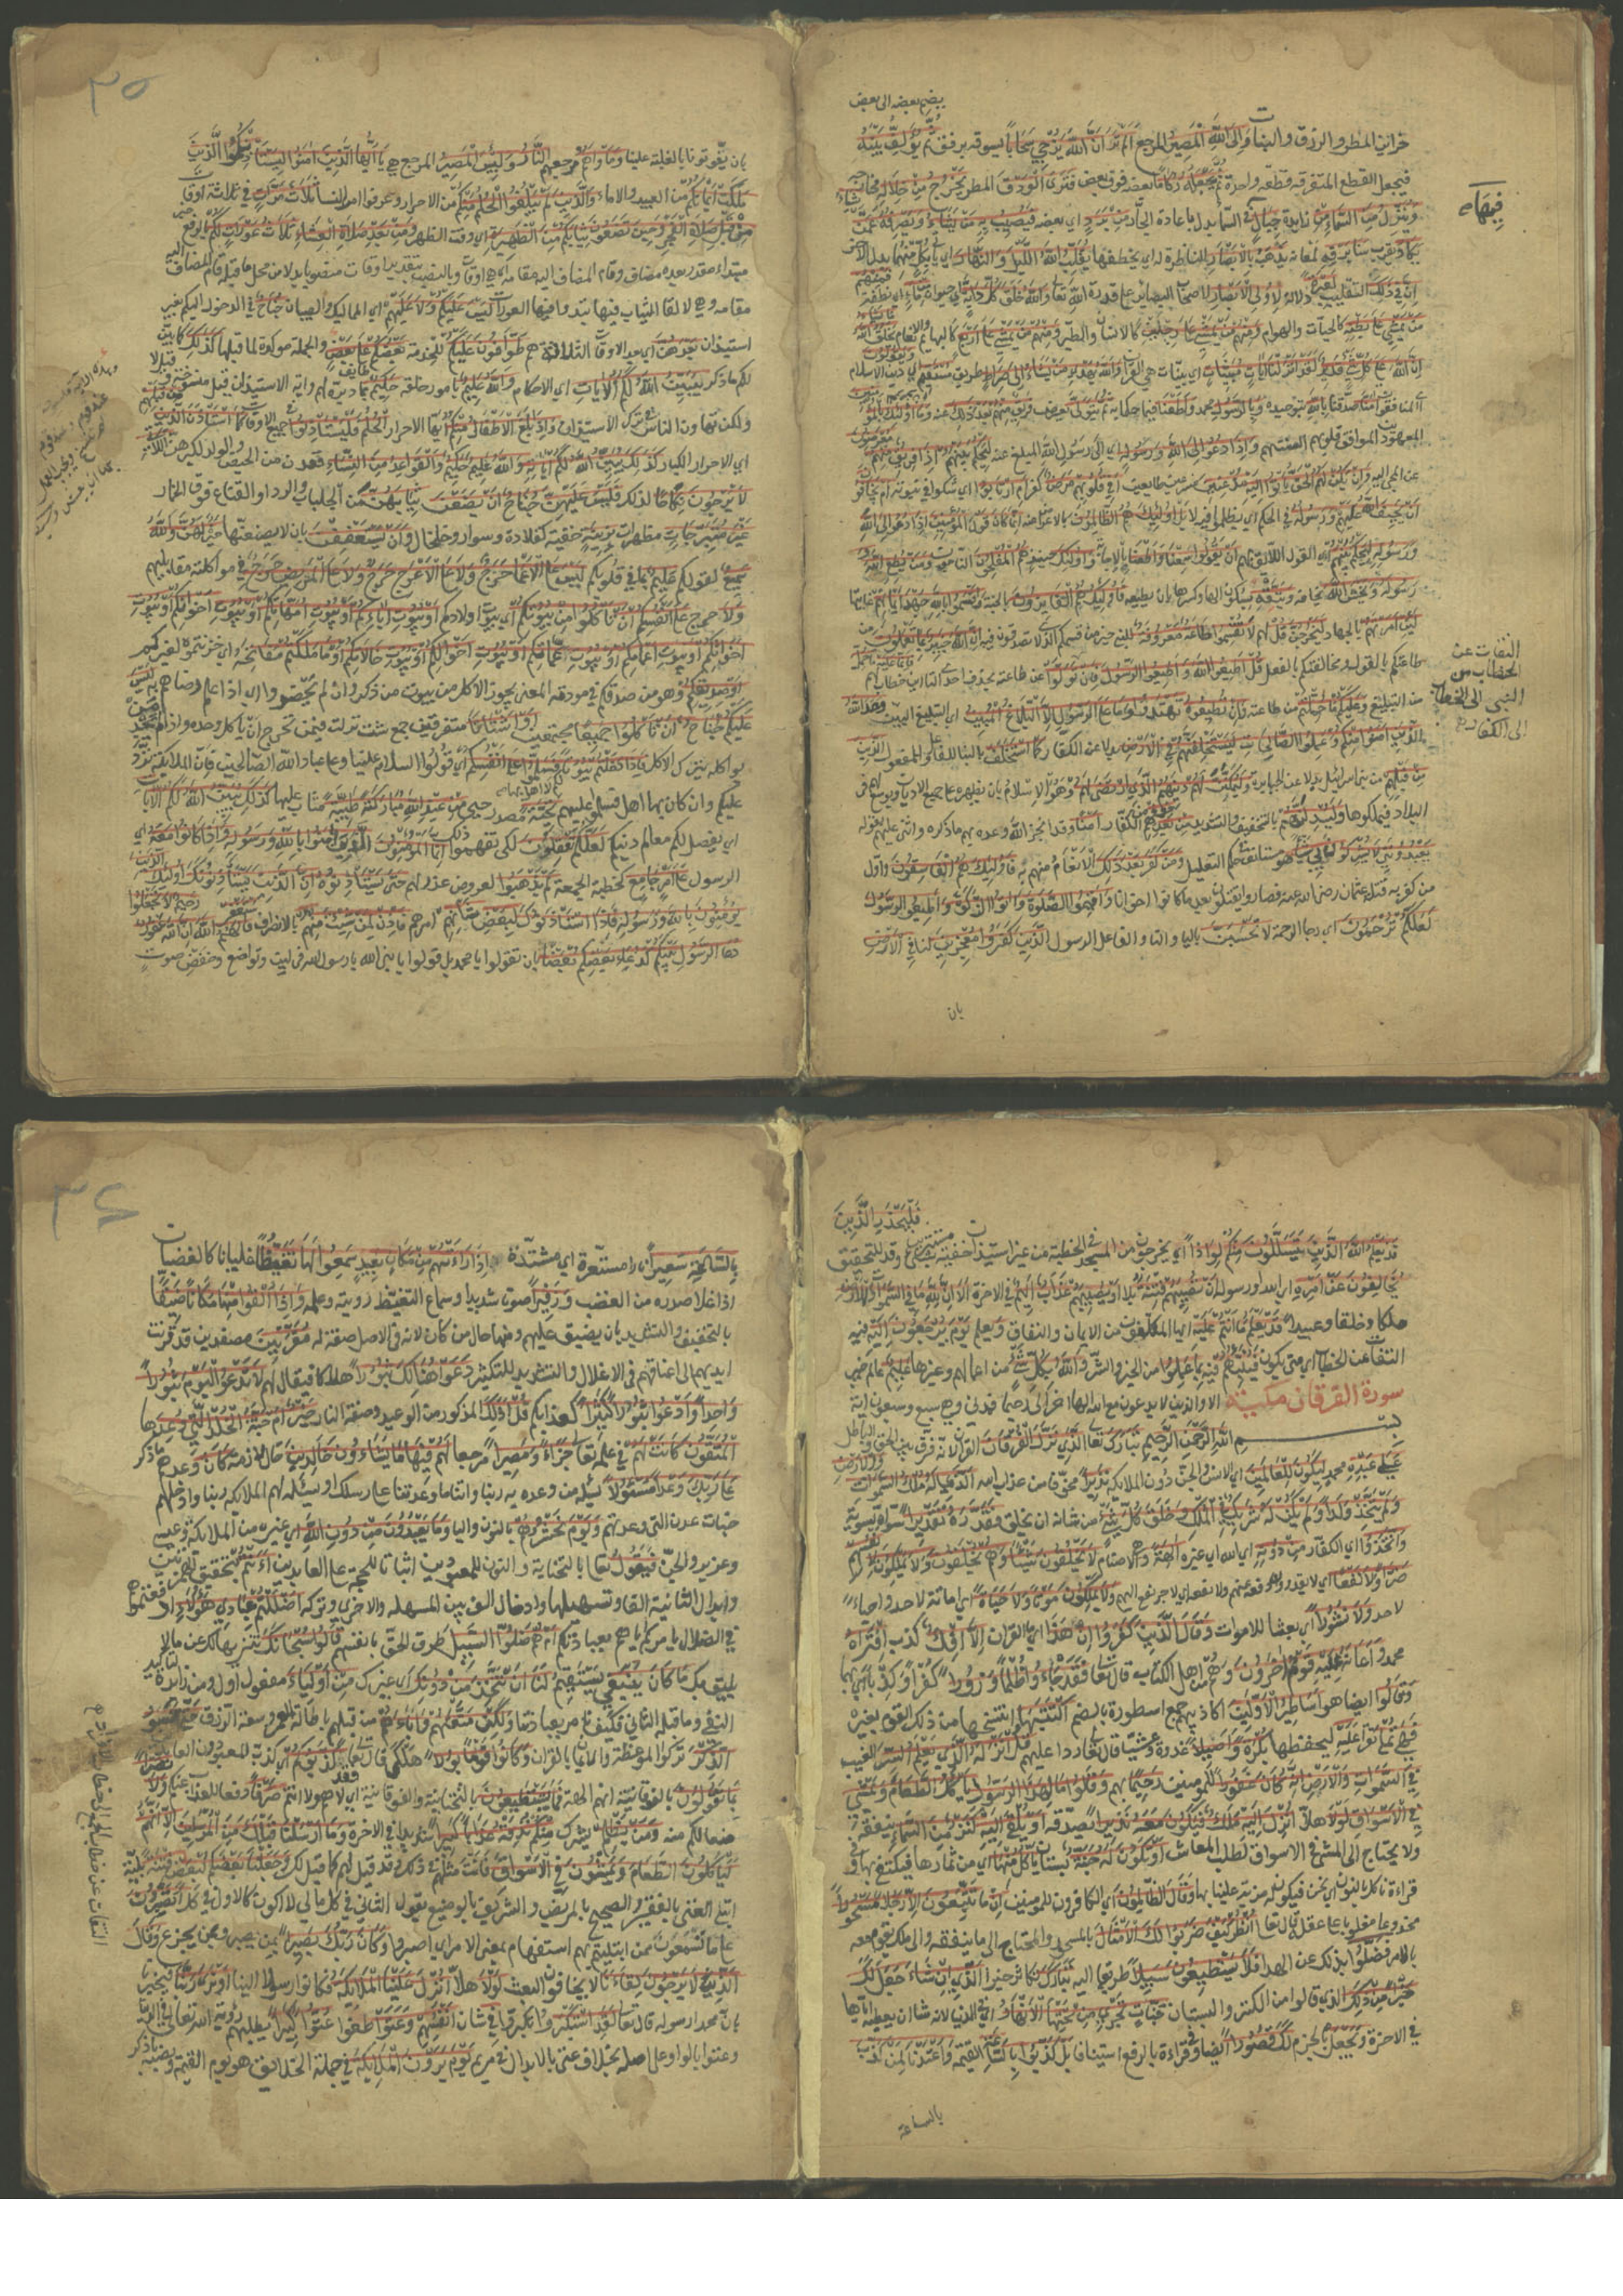 بضم بعضه الى بعض
خزاين المطر والرزق والنبات وَاِلَى اللّٰهِ الْمَصِيرُ المرجع اَلَمْ تَرَ اَنَّ اللّٰهَ يُزْجِي سَحَابًا يسوقه برفق ثُمَّ يُؤَلِّفُ بَيْنَهُ
فيجعل القطع المتفرقة قطعة واحدة ثُمَّ يَجْعَلُهُ رُكَامًا بعضه فوق بعض فَتَرَى الْوَدْقَ المطر يَخْرُجُ مِنْ خِلَالِهِ مخارجه
وَيُنَزِّلُ مِنَ السَّمَاءِ مِنْ زايدة جِبَالٍ فِيهَا فى السماء بدل باعادة الجار مِنْ بَرَدٍ اى بعضه فَيُصِيبُ بِهِ مَنْ يَشَاءُ وَيَصْرِفُهُ عَمَّنْ يشاء
يَكَادُ يقرب سَنَا بَرْقِهِ لمعانه يَذْهَبُ بِالْاَبْصَارِ الناظرة له اى يخطفها يُقَلِّبُ اللّٰهُ اللَّيْلَ وَالنَّهَارَ اى ياتى بكل منهما بدل الاخر
اِنَّ فِي ذٰلِكَ التقليب لَعِبْرَةً دلالة لِاُولِي الْاَبْصَارِ لاصحاب البصاير على قدرة الله تعا وَاللّٰهُ خَلَقَ كُلَّ دَابَّةٍ اى حيوان مِنْ مَاءٍ اى نطفة فَمِنْهُمْ
مَنْ يَمْشِي عَلَى بَطْنِهِ كالحيات والهوام وَمِنْهُمْ مَنْ يَمْشِي عَلَى رِجْلَيْنِ كالانسان والطير وَمِنْهُمْ مَنْ يَمْشِي عَلَى اَرْبَعٍ كالبهايم والانعام يَخْلُقُ اللّٰهُ مَا يَشَاءُ
اِنَّ اللّٰهَ عَلَى كُلِّ شَيْءٍ قَدِيرٌ لَقَدْ اَنْزَلْنَا آيَاتٍ مُبَيِّنَاتٍ اى بينات هى القران وَاللّٰهُ يَهْدِي مَنْ يَشَاءُ اِلَى صِرَاطٍ طريق مُسْتَقِيمٍ اى دين الاسلام وَيَقُولُونَ
اى المنافقون آمَنَّا صدقنا بِاللّٰهِ بتوحيده وَبِالرَّسُولِ محمد وَاَطَعْنَا فيما حكما به ثُمَّ يَتَوَلَّى يعرض فَرِيقٌ مِنْهُمْ مِنْ بَعْدِ ذٰلِكَ عنه وَمَا اُولٰئِكَ بِالْمُؤْمِنِينَ
المعهودين الموافق قلوبهم السنتهم وَاِذَا دُعُوا اِلَى اللّٰهِ وَرَسُولِهِ اى الى رسول الله المبلغ عنه لِيَحْكُمَ بَيْنَهُمْ اِذَا فَرِيقٌ مِنْهُمْ مُعْرِضُونَ
عن المجى اليه وَاِنْ يَكُنْ لَهُمُ الْحَقُّ يَاْتُوا اِلَيْهِ مُذْعِنِينَ مسرعين طايعين اَفِي قُلُوبِهِمْ مَرَضٌ كفر اَمِ ارْتَابُوا اى شكوا فى نبوته اَمْ يَخَافُونَ
اَنْ يَحِيفَ اللّٰهُ عَلَيْهِمْ وَرَسُولُهُ فى الحكم اى يظلموا فيه لا بَلْ اُولٰئِكَ هُمُ الظَّالِمُونَ بالاعراض عنه اِنَّمَا كَانَ قَوْلَ الْمُؤْمِنِينَ اِذَا دُعُوا اِلَى اللّٰهِ
وَرَسُولِهِ لِيَحْكُمَ بَيْنَهُمْ اى القول اللايق بهم اَنْ يَقُولُوا سَمِعْنَا وَاَطَعْنَا بالاجابة وَاُولٰئِكَ حينئذ هُمُ الْمُفْلِحُونَ الناجون وَمَنْ يُطِعِ اللّٰهَ
وَرَسُولَهُ وَيَخْشَ اللّٰهَ يخافه وَيَتَّقْهِ بسكون الهاء وكسرها بان يطيعه فَاُولٰئِكَ هُمُ الْفَائِزُونَ بالجنة وَاَقْسَمُوا بِاللّٰهِ جَهْدَ اَيْمَانِهِمْ غايتها
لَئِنْ اَمَرْتَهُمْ بالجهاد لَيَخْرُجُنَّ قُلْ لهم لَا تُقْسِمُوا طَاعَةٌ مَعْرُوفَةٌ للنبى خير من قسمكم الذى لا تصدقون فيه اِنَّ اللّٰهَ خَبِيرٌ بِمَا تَعْمَلُونَ من
طاعتكم بالقول ومخالفتكم بالفعل قُلْ اَطِيعُوا اللّٰهَ وَاَطِيعُوا الرَّسُولَ فَاِنْ تَوَلَّوْا عن طاعته بحذف احدى التاءين خطاب لهم فَاِنَّمَا عَلَيْهِ مَا حُمِّلَ
من التبليغ وَعَلَيْكُمْ مَا حُمِّلْتُمْ من طاعته وَاِنْ تُطِيعُوهُ تَهْتَدُوا وَمَا عَلَى الرَّسُولِ اِلَّا الْبَلَاغُ الْمُبِينُ اى التبليغ البين وَعَدَ اللّٰهُ
الَّذِينَ آمَنُوا مِنْكُمْ وَعَمِلُوا الصَّالِحَاتِ لَيَسْتَخْلِفَنَّهُمْ فِي الْاَرْضِ بدلا عن الكفار كَمَا اسْتَخْلَفَ بالبنا للفاعل والمفعول الَّذِينَ
مِنْ قَبْلِهِمْ من بنى اسرائيل بدلا عن الجبابرة وَلَيُمَكِّنَنَّ لَهُمْ دِينَهُمُ الَّذِي ارْتَضَى لَهُمْ وهو الاسلام بان يظهره على جميع الاديان ويوسع لهم فى
البلاد فيملكوها وَلَيُبَدِّلَنَّهُمْ بالتخفيف والتشديد مِنْ بَعْدِ خَوْفِهِمْ من الكفار اَمْنًا وقد انجز الله وعده بهم ما ذكره واثنى عليهم بقوله
يَعْبُدُونَنِي لَا يُشْرِكُونَ بِي شَيْئًا هو مستانف فى حكم التعليل وَمَنْ كَفَرَ بَعْدَ ذٰلِكَ الانعام منهم به فَاُولٰئِكَ هُمُ الْفَاسِقُونَ واول
من كفر به قتلة عثمان رضى الله عنه فصاروا يقتتلون بعد ما كانوا اخوانا وَاَقِيمُوا الصَّلٰوةَ وَآتُوا الزَّكٰوةَ وَاَطِيعُوا الرَّسُولَ
لَعَلَّكُمْ تُرْحَمُونَ اى رجاء الرحمة لَا تَحْسَبَنَّ بالياء والتاء والفاعل الرسول الَّذِينَ كَفَرُوا مُعْجِزِينَ لنا فِي الْاَرْضِ
بان
فِيهَا
التفات عن
الخطاب من
النبى الى الخطاب
الى الكفار
٣٥
بان يفوتونا بالغلبة علينا وَمَاْوٰهُمُ مرجعهم النَّارُ وَلَبِئْسَ الْمَصِيرُ المرجع هى يَا اَيُّهَا الَّذِينَ آمَنُوا لِيَسْتَاْذِنْكُمُ الَّذِينَ
مَلَكَتْ اَيْمَانُكُمْ من العبيد والاماء وَالَّذِينَ لَمْ يَبْلُغُوا الْحُلُمَ مِنْكُمْ من الاحرار وعرفوا امر النساء ثَلَاثَ مَرَّاتٍ فى ثلاثة اوقات
مِنْ قَبْلِ صَلٰوةِ الْفَجْرِ وَحِينَ تَضَعُونَ ثِيَابَكُمْ مِنَ الظَّهِيرَةِ اى وقت الظهر وَمِنْ بَعْدِ صَلٰوةِ الْعِشَاءِ ثَلَاثُ عَوْرَاتٍ لَكُمْ بالرفع خبر
مبتداء مقدر بعده مضاف وقام المضاف اليه مقامه اى هى اوقات وبالنصب بتقدير اوقات منصوبا بدلا من محل ما قبله قام المضاف اليه
مقامه وهى لالقاء الثياب فيها تبدو فيها العورات لَيْسَ عَلَيْكُمْ وَلَا عَلَيْهِمْ اى المماليك والصبيان جُنَاحٌ فى الدخول اليكم بغير
استيذان بَعْدَهُنَّ اى بعد الاوقات الثلاثة هم طَوَّافُونَ عَلَيْكُمْ للخدمة بَعْضُكُمْ طائف عَلَى بَعْضٍ والجملة موكدة لما قبلها كَذٰلِكَ كما بين
لكم ما ذكر يُبَيِّنُ اللّٰهُ لَكُمُ الْآيَاتِ اى الاحكام وَاللّٰهُ عَلِيمٌ بامور خلقه حَكِيمٌ بما دبره لهم واية الاستيذان قيل منسوخة وقيل لا
ولكن تهاون الناس فى ترك الاستيذان وَاِذَا بَلَغَ الْاَطْفَالُ مِنْكُمُ ايها الاحرار الْحُلُمَ فَلْيَسْتَاْذِنُوا فى جميع الاوقات كَمَا اسْتَاْذَنَ الَّذِينَ مِنْ قَبْلِهِمْ
اى الاحرار الكبار كَذٰلِكَ يُبَيِّنُ اللّٰهُ لَكُمْ آيَاتِهِ وَاللّٰهُ عَلِيمٌ حَكِيمٌ وَالْقَوَاعِدُ مِنَ النِّسَاءِ قعدن من الحيض والولد لكبرهن اللَّاتِي
لَا يَرْجُونَ نِكَاحًا لذلك فَلَيْسَ عَلَيْهِنَّ جُنَاحٌ اَنْ يَضَعْنَ ثِيَابَهُنَّ من الجلباب والرداء والقناع فوق الخمار
غَيْرَ مُتَبَرِّجَاتٍ مظهرات بِزِينَةٍ خفية كقلادة وسوار وخلخال وَاَنْ يَسْتَعْفِفْنَ بان لا يضعنها خَيْرٌ لَهُنَّ وَاللّٰهُ
سَمِيعٌ لقولكم عَلِيمٌ بما فى قلوبكم لَيْسَ عَلَى الْاَعْمَى حَرَجٌ وَلَا عَلَى الْاَعْرَجِ حَرَجٌ وَلَا عَلَى الْمَرِيضِ حَرَجٌ فى مواكلة مقابليهم
وَلَا حرج عَلَى اَنْفُسِكُمْ اَنْ تَاْكُلُوا مِنْ بُيُوتِكُمْ اى بيوت اولادكم اَوْ بُيُوتِ آبَائِكُمْ اَوْ بُيُوتِ اُمَّهَاتِكُمْ اَوْ بُيُوتِ اِخْوَانِكُمْ اَوْ بُيُوتِ
اَخَوَاتِكُمْ اَوْ بُيُوتِ اَعْمَامِكُمْ اَوْ بُيُوتِ عَمَّاتِكُمْ اَوْ بُيُوتِ اَخْوَالِكُمْ اَوْ بُيُوتِ خَالَاتِكُمْ اَوْ مَا مَلَكْتُمْ مَفَاتِحَهُ اى خزنتموه لغيركم
اَوْ صَدِيقِكُمْ وهو من صدقكم فى مودته المعنى يجوز الاكل من بيوت من ذكر وان لم يحضروا اى اذا علم رضاهم به لَيْسَ
عَلَيْكُمْ جُنَاحٌ اَنْ تَاْكُلُوا جَمِيعًا مجتمعين اَوْ اَشْتَاتًا متفرقين جمع شت نزلت فيمن تحرج ان ياكل وحده واذا لم يجد من
يواكله يترك الاكل فَاِذَا دَخَلْتُمْ بُيُوتًا فَسَلِّمُوا عَلَى اَنْفُسِكُمْ اى قولوا السلام علينا وعلى عباد الله الصالحين فان الملايكة ترد
عليكم وان كان بها اهل فسلموا عليهم تَحِيَّةً مصدر حيى مِنْ عِنْدِ اللّٰهِ مُبَارَكَةً طَيِّبَةً يثاب عليها كَذٰلِكَ يُبَيِّنُ اللّٰهُ لَكُمُ الْآيَاتِ
اى يفصل لكم معالم دينكم لَعَلَّكُمْ تَعْقِلُونَ لكى تفهموا ذلك اِنَّمَا الْمُؤْمِنُونَ الَّذِينَ آمَنُوا بِاللّٰهِ وَرَسُولِهِ وَاِذَا كَانُوا مَعَهُ اى
الرسول عَلَى اَمْرٍ جَامِعٍ كخطبة الجمعة لَمْ يَذْهَبُوا لعروض عذر لهم حَتَّى يَسْتَاْذِنُوهُ اِنَّ الَّذِينَ يَسْتَاْذِنُونَكَ اُولٰئِكَ الَّذِينَ
يُؤْمِنُونَ بِاللّٰهِ وَرَسُولِهِ فَاِذَا اسْتَاْذَنُوكَ لِبَعْضِ شَاْنِهِمْ امرهم فَاْذَنْ لِمَنْ شِئْتَ مِنْهُمْ بالانصراف وَاسْتَغْفِرْ لَهُمُ اللّٰهَ اِنَّ اللّٰهَ غَفُورٌ رَحِيمٌ لَا تَجْعَلُوا
دُعَاءَ الرَّسُولِ بَيْنَكُمْ كَدُعَاءِ بَعْضِكُمْ بَعْضًا بان تقولوا يا محمد بل قولوا يا نبى الله يا رسول الله فى لين وتواضع وخفض صوت
فَلْيَحْذَرِ الَّذِينَ
قَدْ يَعْلَمُ اللّٰهُ الَّذِينَ يَتَسَلَّلُونَ مِنْكُمْ لِوَاذًا اى يخرجون من المسجد فى الخطبة من غير استيذان خفية مستترين بشئ وقد للتحقيق
يُخَالِفُونَ عَنْ اَمْرِهِ اى الله او رسوله اَنْ تُصِيبَهُمْ فِتْنَةٌ بلاء اَوْ يُصِيبَهُمْ عَذَابٌ اَلِيمٌ فى الاخرة اَلَا اِنَّ لِلّٰهِ مَا فِي السَّمٰوَاتِ وَالْاَرْضِ
ملكا وخلقا وعبيدا قَدْ يَعْلَمُ مَا اَنْتُمْ عَلَيْهِ ايها المكلفون من الايمان والنفاق وَ يعلم يَوْمَ يُرْجَعُونَ اِلَيْهِ فيه
التفات عن الخطاب اى متى يكون فَيُنَبِّئُهُمْ فيه بِمَا عَمِلُوا من الخير والشر وَاللّٰهُ بِكُلِّ شَيْءٍ من اعمالهم وغيرها عَلِيمٌ
سورة الفرقان مكية الا والذين لا يدعون مع الله الها اخر الى رحيما فمدنى وهى سبع وسبعون اية
بسم اللّٰهِ الرَّحْمٰنِ الرَّحِيمِ تَبَارَكَ تعا الَّذِي نَزَّلَ الْفُرْقَانَ القران لانه فرق بين الحق والباطل
عَلَى عَبْدِهِ محمد لِيَكُونَ لِلْعَالَمِينَ اى الانس والجن دون الملايكة نَذِيرًا مخوفا من عذاب الله الَّذِي لَهُ مُلْكُ السَّمٰوَاتِ وَالْاَرْضِ
وَلَمْ يَتَّخِذْ وَلَدًا وَلَمْ يَكُنْ لَهُ شَرِيكٌ فِي الْمُلْكِ وَخَلَقَ كُلَّ شَيْءٍ من شانه ان يخلق فَقَدَّرَهُ تَقْدِيرًا سواه تسوية
وَاتَّخَذُوا اى الكفار مِنْ دُونِهِ اى الله اى غيره آلِهَةً هى الاصنام لَا يَخْلُقُونَ شَيْئًا وَهُمْ يُخْلَقُونَ وَلَا يَمْلِكُونَ لِاَنْفُسِهِمْ
ضَرًّا وَلَا نَفْعًا اى لا يقدرون دفعه عنهم ولا نفعا اى لا جر نفع اليهم وَلَا يَمْلِكُونَ مَوْتًا وَلَا حَيٰوةً اى اماتة لاحد واحياء
لاحد وَلَا نُشُورًا اى بعثا للاموات وَقَالَ الَّذِينَ كَفَرُوا اِنْ هٰذَا اى ما القران اِلَّا اِفْكٌ كذب افْتَرَاهُ
محمد وَاَعَانَهُ عَلَيْهِ قَوْمٌ آخَرُونَ وهم من اهل الكتاب قال تعا فَقَدْ جَاءُوا ظُلْمًا وَزُورًا كفرا وكذبا اى بهما
وَقَالُوا ايضا هو اَسَاطِيرُ الْاَوَّلِينَ اكاذيبهم جمع اسطورة بالضم اكْتَتَبَهَا انتسخها من ذلك القوم بغيره
فَهِيَ تُمْلَى تقراء عَلَيْهِ ليحفظها بُكْرَةً وَاَصِيلًا غدوة وعشيا قال تعا ردا عليهم قُلْ اَنْزَلَهُ الَّذِي يَعْلَمُ السِّرَّ الغيب
فِي السَّمٰوَاتِ وَالْاَرْضِ اِنَّهُ كَانَ غَفُورًا للمومنين رَحِيمًا بهم وَقَالُوا مَالِ هٰذَا الرَّسُولِ يَاْكُلُ الطَّعَامَ وَيَمْشِي
فِي الْاَسْوَاقِ لَوْلَا هلا اُنْزِلَ اِلَيْهِ مَلَكٌ فَيَكُونَ مَعَهُ نَذِيرًا يصدقه اَوْ يُلْقٰى اِلَيْهِ كَنْزٌ من السماء ينفقه
ولا يحتاج الى المشى فى الاسواق لطلب المعاش اَوْ تَكُونُ لَهُ جَنَّةٌ بستان يَاْكُلُ مِنْهَا اى من ثمارها فيكتفى بها وفى
قراءة ناكل بالنون اى نحن فيكون له مزية علينا بها وَقَالَ الظَّالِمُونَ اى الكافرون للمومنين اِنْ مَا تَتَّبِعُونَ اِلَّا رَجُلًا مَسْحُورًا
مخدوعا مغلوبا على عقله قال تعا اُنْظُرْ كَيْفَ ضَرَبُوا لَكَ الْاَمْثَالَ بالمسحور والمحتاج الى ما ينفقه والى ملك يقوم معه
بالامر فَضَلُّوا بذلك عن الهدى فَلَا يَسْتَطِيعُونَ سَبِيلًا طريقا اليه تَبَارَكَ تكاثر خيرا الَّذِي اِنْ شَاءَ جَعَلَ لَكَ
خَيْرًا مِنْ ذٰلِكَ الذى قالوا من الكنز والبستان جَنَّاتٍ تَجْرِي مِنْ تَحْتِهَا الْاَنْهَارُ اى فى الدنيا لانه شاء ان يعطيه اياها
فى الاخرة وَيَجْعَلْ بالجزم لَكَ قُصُورًا ايضا وفى قراءة بالرفع استينافا بَلْ كَذَّبُوا بِالسَّاعَةِ القيمة وَاَعْتَدْنَا لِمَنْ كَذَّبَ
بالساعة
٣٦
بِالسَّاعَةِ سَعِيرًا نارا مستعرة اى مشتدة اِذَا رَاَتْهُمْ مِنْ مَكَانٍ بَعِيدٍ سَمِعُوا لَهَا تَغَيُّظًا غليانا كالغضبان
اذا غلا صدره من الغضب وَزَفِيرًا صوتا شديدا وسماع التغيظ رويته وعلمه وَاِذَا اُلْقُوا مِنْهَا مَكَانًا ضَيِّقًا
بالتخفيف والتشديد بان يضيق عليهم ومنها حال من مكان لانه فى الاصل صفة له مُقَرَّنِينَ مصفدين قد قرنت
ايديهم الى اعناقهم فى الاغلال والتشديد للتكثير دَعَوْا هُنَالِكَ ثُبُورًا هلاكا فيقال لهم لَا تَدْعُوا الْيَوْمَ ثُبُورًا
وَاحِدًا وَادْعُوا ثُبُورًا كَثِيرًا كعذابكم قُلْ اَذٰلِكَ المذكور من الوعيد وصفة النار خَيْرٌ اَمْ جَنَّةُ الْخُلْدِ الَّتِي وُعِدَ ها
الْمُتَّقُونَ كَانَتْ لَهُمْ فى علمه تعا جَزَاءً وَمَصِيرًا مرجعا لَهُمْ فِيهَا مَا يَشَاءُونَ خَالِدِينَ حال لازمة كَانَ وعدهم ما ذكر
عَلَى رَبِّكَ وَعْدًا مَسْئُولًا يسئله من وعد به ربنا واتنا ما وعدتنا على رسلك او يسئله لهم الملايكة ربنا وادخلهم
جنات عدن التى وعدتهم وَيَوْمَ نَحْشُرُهُمْ بالنون والياء وَمَا يَعْبُدُونَ مِنْ دُونِ اللّٰهِ اى غيره من الملايكة وعيسى
وعزير والجن فَيَقُولُ تعا بالتحتانية والنون للمعبودين اثباتا للحجة على العابدين اَاَنْتُمْ بتحقيق الهمزتين
وابدال الثانية الفا وتسهيلها وادخال الف بين المسهلة والاخرى وتركه اَضْلَلْتُمْ عِبَادِي هٰؤُلَاءِ اوقعتموهم
فى الضلال بامركم اياهم بعبادتكم اَمْ هُمْ ضَلُّوا السَّبِيلَ طريق الحق بانفسهم قَالُوا سُبْحَانَكَ تنزيها لك عن ما لا
يليق بك مَا كَانَ يَنْبَغِي يستقيم لَنَا اَنْ نَتَّخِذَ مِنْ دُونِكَ اى غيرك مِنْ اَوْلِيَاءَ مفعول اول ومن زايدة لتاكيد
النفى وما قبله الثانى فكيف نامر بعبادتنا وَلٰكِنْ مَتَّعْتَهُمْ وَآبَاءَهُمْ من قبلهم باطالة العمر وسعة الرزق حَتَّى نَسُوا
الذِّكْرَ تركوا الموعظة والايمان بالقران وَكَانُوا قَوْمًا بُورًا هلكى قال تعا فَقَدْ كَذَّبُوكُمْ اى كذب المعبودون العابدين
بِمَا تَقُولُونَ بالفوقانية انهم الهة فَمَا يَسْتَطِيعُونَ بالتحتانية والفوقانية اى لا هم ولا انتم صَرْفًا دفعا للعذاب عنكم وَلَا نَصْرًا
منعا لكم منه وَمَنْ يَظْلِمْ يشرك مِنْكُمْ نُذِقْهُ عَذَابًا كَبِيرًا شديدا فى الاخرة وَمَا اَرْسَلْنَا قَبْلَكَ مِنَ الْمُرْسَلِينَ اِلَّا اِنَّهُمْ
لَيَاْكُلُونَ الطَّعَامَ وَيَمْشُونَ فِي الْاَسْوَاقِ فانت مثلهم فى ذلك وقد قيل لهم كما قيل لك وَجَعَلْنَا بَعْضَكُمْ لِبَعْضٍ فِتْنَةً بلية
ابتلى الغنى بالفقير والصحيح بالمريض والشريف بالوضيع يقول الثانى فى كل مالى لا اكون كالاول فى كل اَتَصْبِرُونَ
على ما تسمعون ممن ابتليتم بهم استفهام بمعنى الامر اى اصبروا وَكَانَ رَبُّكَ بَصِيرًا بمن يصبر وبمن يجزع وَقَالَ
الَّذِينَ لَا يَرْجُونَ لِقَاءَنَا لا يخافون البعث لَوْلَا هلا اُنْزِلَ عَلَيْنَا الْمَلٰئِكَةُ فكانوا رسلا الينا اَوْ نَرٰى رَبَّنَا فيخبرنا
بان محمدا رسوله قال تعا لَقَدِ اسْتَكْبَرُوا تكبروا فِي شان اَنْفُسِهِمْ وَعَتَوْا طغوا عُتُوًّا كَبِيرًا بطلبهم روية الله تعالى فى الدنيا
وعتوا بالواو على اصله بخلاف عتى بالابدال فى مريم يَوْمَ يَرَوْنَ الْمَلٰئِكَةَ فى جملة الخلايق هو يوم القيمة ونصبه باذكر